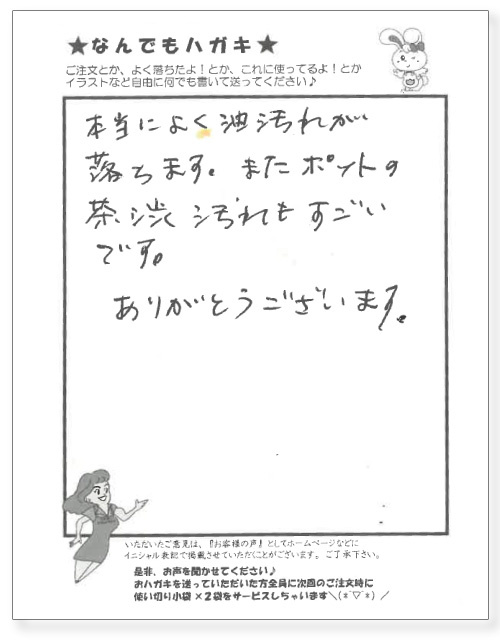 ★なんでもハガキ★
ご注文とか、よく落ちたよ！とか、これに使ってるよ！とか
イラストなど自由に何でも書いて送ってください♪
本当によく油汚れが
落ちます。またポットの
茶渋汚れもすごい
です。
ありがとうございます。
いただいたご意見は、『お客様の声』としてホームページなどに
イニシャル表記で掲載させていただくことがございます。ご了承下さい。
是非、お声を聞かせてください♪
おハガキを送っていただいた方全員に次回のご注文時に
使い切り小袋×2袋をサービスしちゃいます＼(*´▽`*)／